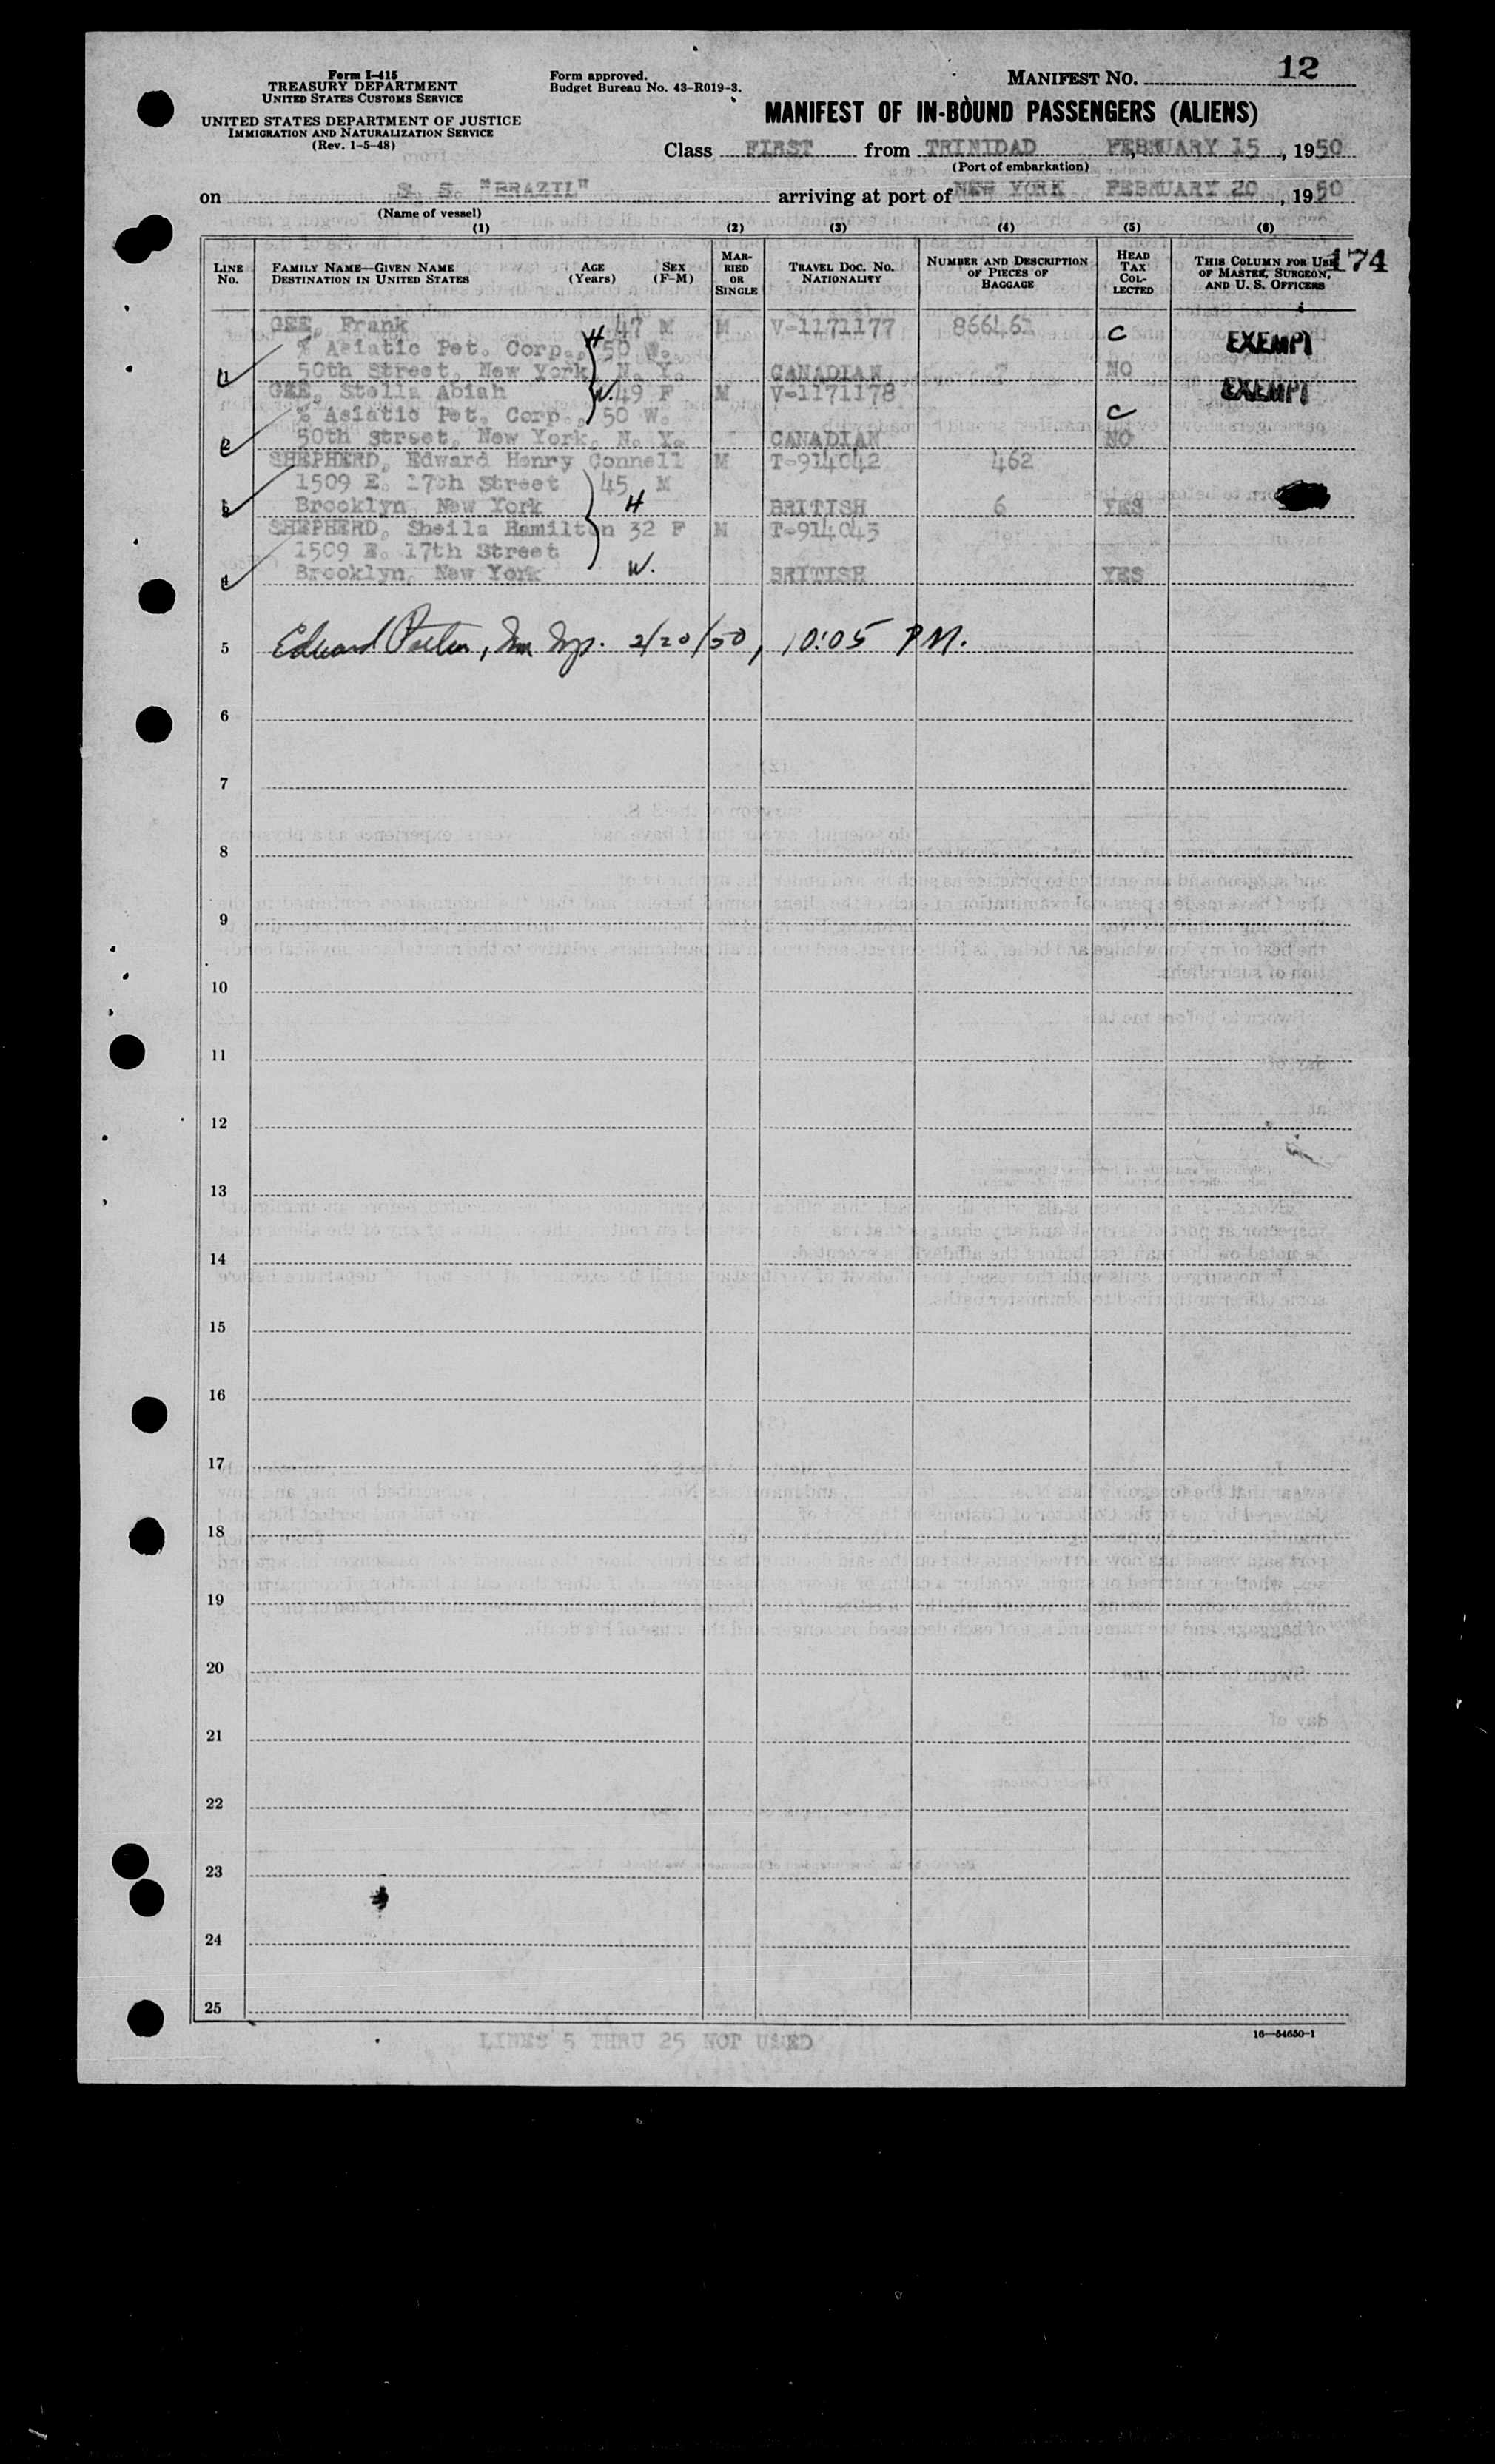 Form I-415
TREASURY DEPARTMENT
UNITED STATES CUSTOMS SERVICE
UNITED STATES DEPARTMENT OF JUSTICE
IMMIGRATION AND NATURALIZATION SERVICE
(Rev. 1-5-48)
Form approved.
Budget Bureau No. 43-R019-3.
MANIFEST NO. 12
MANIFEST OF IN-BOUND PASSENGERS (ALIENS)
Class FIRST from TRINIDAD FEBRUARY 15, 1950
(Port of embarkation)
on S. S. "BRAZIL" arriving at port of NEW YORK FEBRUARY 20, 1950
(Name of vessel)
(1) (2) (3) (4) (5) (6)
LINE NO. FAMILY NAME—GIVEN NAME DESTINATION IN UNITED STATES AGE (Years) SEX (F-M) MARRIED OR SINGLE TRAVEL DOC. NO. NATIONALITY NUMBER AND DESCRIPTION OF PIECES OF BAGGAGE HEAD TAX COLLECTED THIS COLUMN FOR USE OF MASTER, SURGEON, AND U. S. OFFICERS 174
GEE, Frank 47 M M V-1171177 866461 C EXEMPT
% Asiatic Pet. Corp., 50 W. H
1 50th Street, New York, N. Y. CANADIAN 7 NO
GEE, Stella Abiah W. 49 F M V-1171178 EXEMPT
% Asiatic Pet. Corp., 50 W. C
2 50th Street, New York, N. Y. CANADIAN NO
SHEPHERD, Edward Henry Connell M T-914042 462
1509 E. 17th Street 45 M
3 Brooklyn, New York H BRITISH 6 YES
SHEPHERD, Sheila Hamilton 32 F M T-914043
1509 E. 17th Street
4 Brooklyn, New York W. BRITISH YES
5 Edward 2/20/50, 10:05 PM.
6
7
8
9
10
11
12
13
14
15
16
17
18
19
20
21
22
23
24
25
LINES 5 THRU 25 NOT USED
16—54650-1